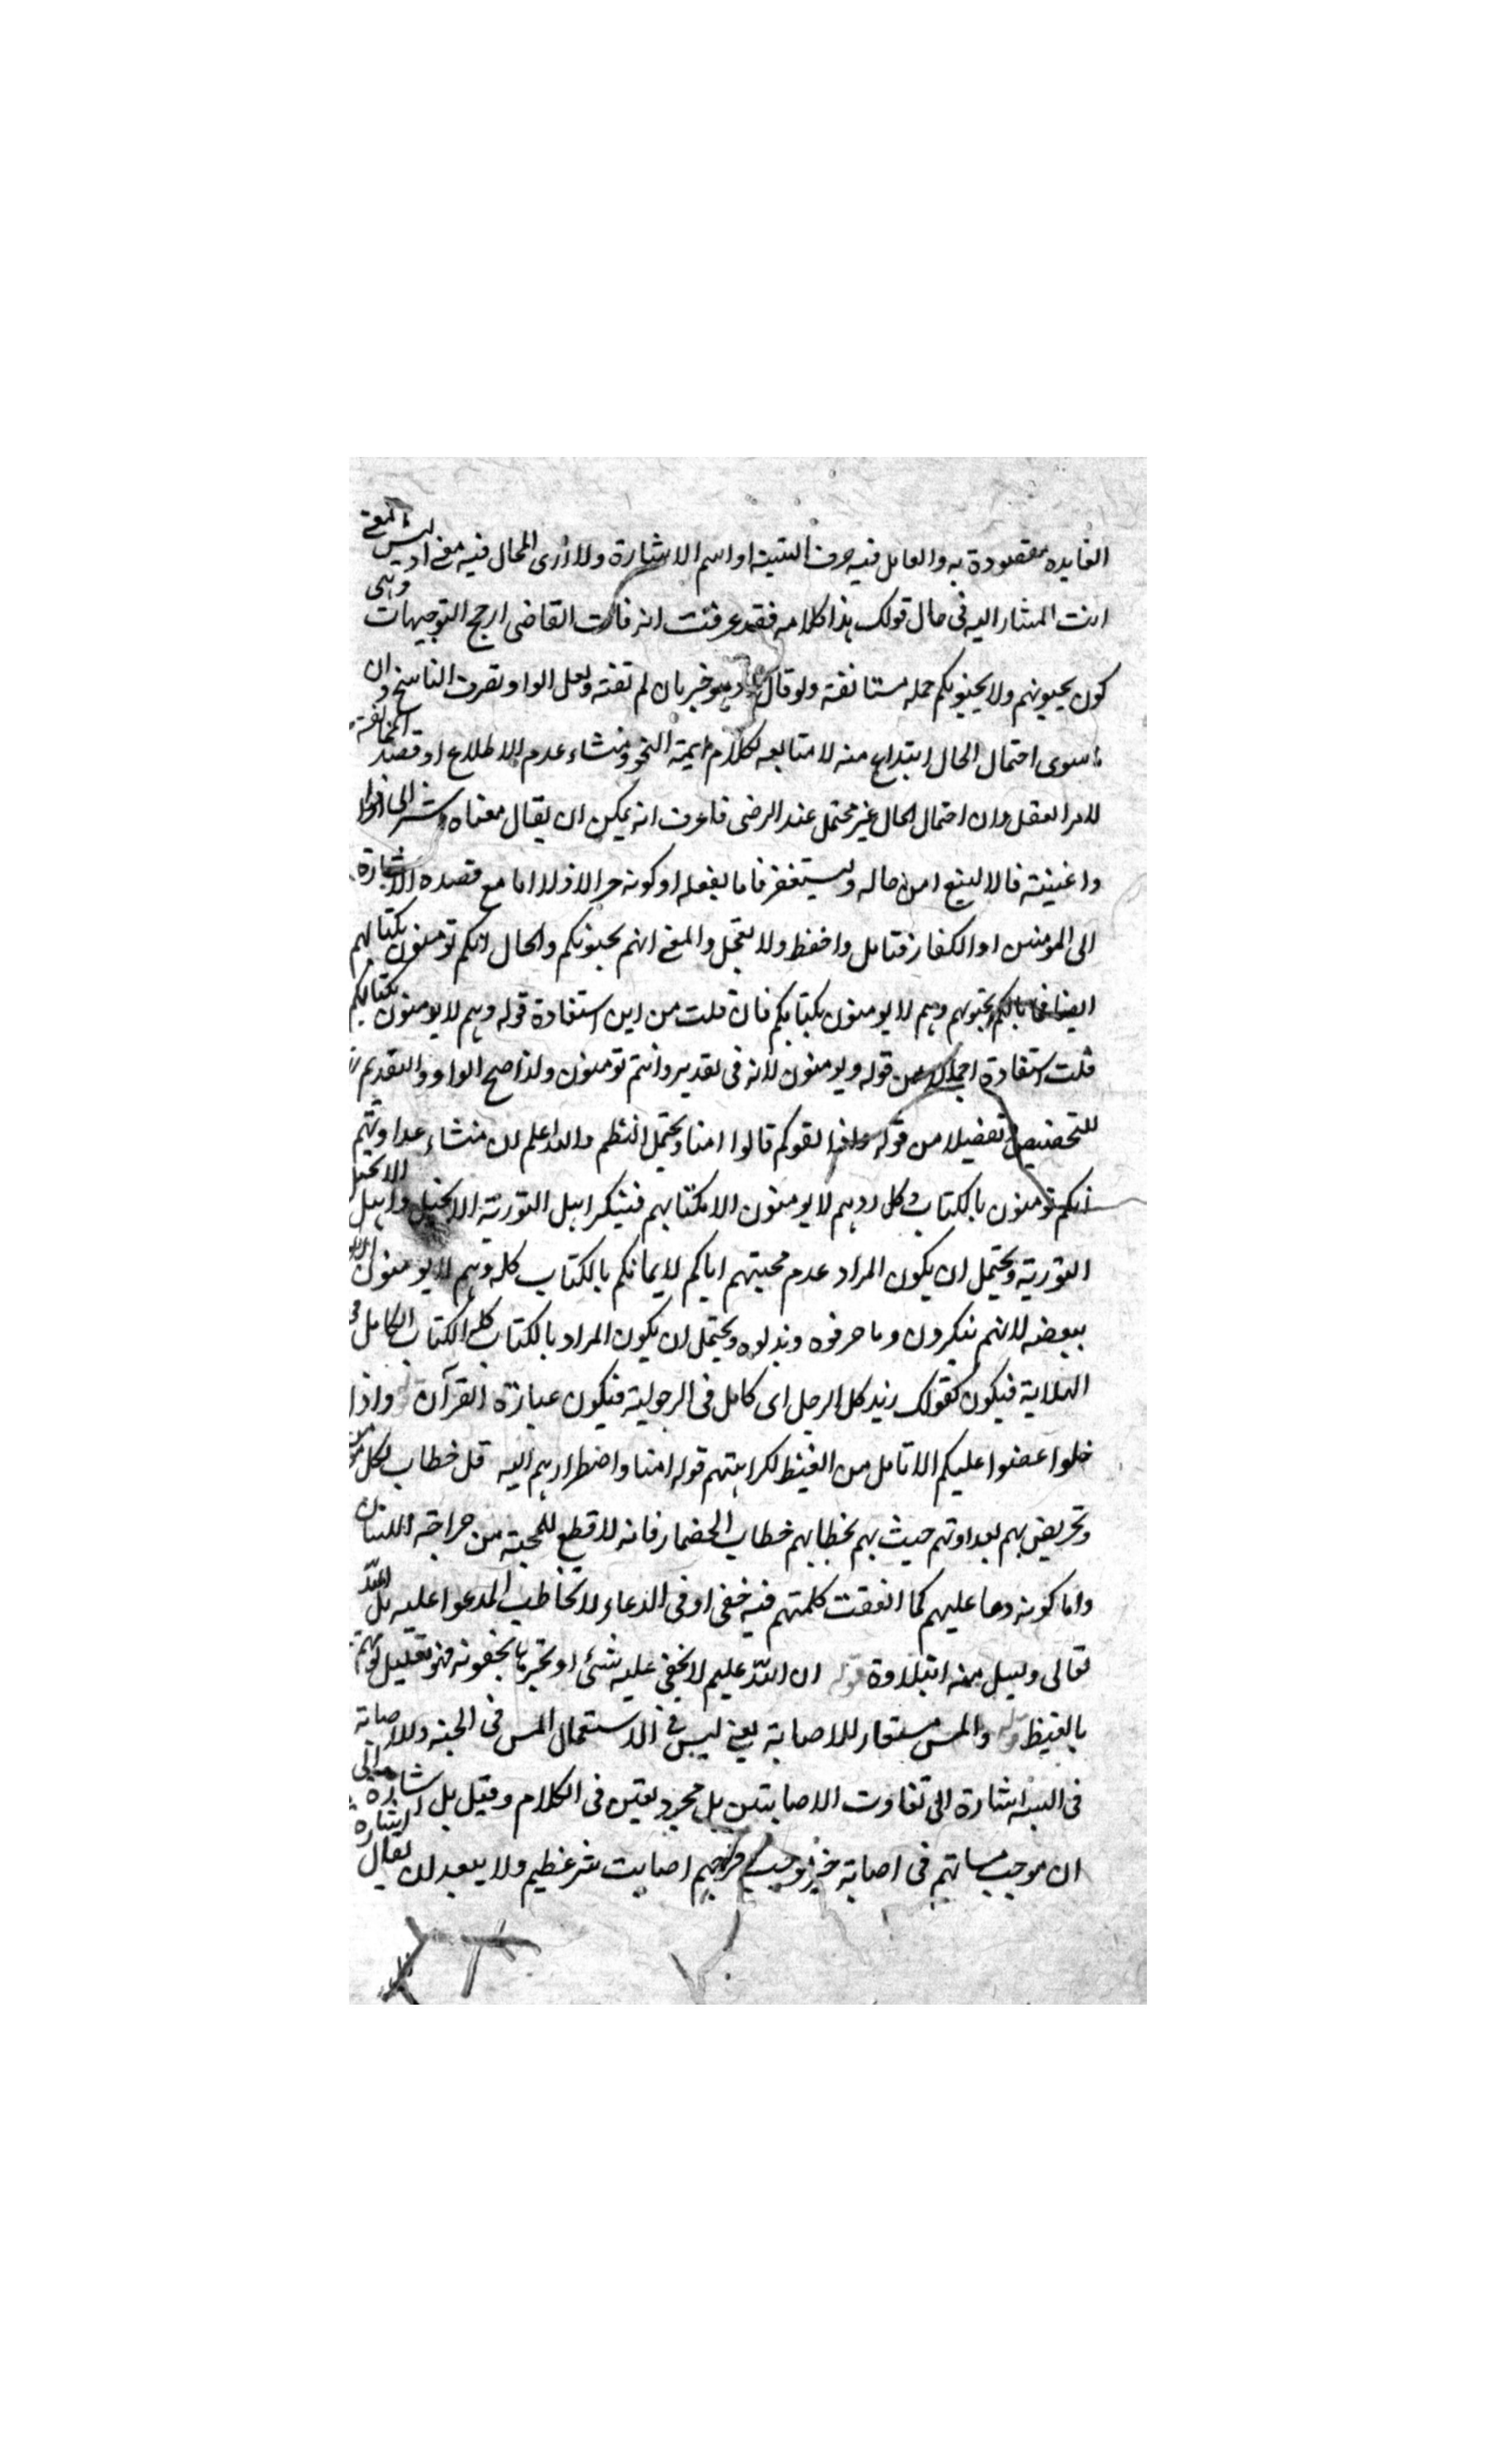 الفايده مقصودة به والعامل فيه حرف التنبيه او اسم الاشارة ولا ارى للحال فيه معنى اذ ليس المعنى
انت المشار اليه فى حال قولك هذا كلامه فقد عرفت انه فات القاضى ارجح التوجيهات وهى
كون يحبونهم ولا يحبونكم جمله مستانفة ولو قال وهو خبر بان لم تفته ولعل الواو تصرف الناسخ وان
ما سوى احتمال الحال ابتداع منه لا متابعه لكلام ايمة النحو ومنشاء عدم الاطلاع او قصد المخالفة
للامر العقل وان احتمال الحال غير محتمل عند الرضى فاعرف انه يمكن ان يقال معناه
واغنيته فالا لينبع امن حاله وليستغفر فاما يفعله او كونه حرالاذلا اما مع قصده الاشارة
الى المومنين او الكفار فتامل واحفظ ولا تعجل والمعنى انهم يحبونكم والحال انكم تومنون بكتابهم
ايضا فما بالكم تحبونهم وهم لا يومنون بكتابكم فان قلت من اين استفادة قوله وهم لا يومنون بكتابكم
قلت استفادة اجمالا من قوله ويومنون لانه فى تقدير وانتم تومنون ولذا صح الواو والتقديم
للتخصيص وتفصيلا من قوله واذا لقوكم قالوا امنا ويحتمل النظم والله اعلم ان منشاء عداوتهم
انكم تومنون بالكتاب كل دهم لا يومنون الا بكتابهم فينكر اهل التورية الانجيل واهل الانجيل
التورية ويحتمل ان يكون المراد عدم محبتهم اياكم لايمانكم بالكتاب كله وهم لا يومنون الا
ببعضه لانهم ينكرون وما حرفوه وبدلوه ويحتمل ان يكون المراد بالكتاب كله الكتاب الكامل فى
الهداية فيكون كقولك زيد كل الرجل اى كامل فى الرجولية فيكون عبارة القرآن واذا
خلوا عضوا عليكم الانامل من الغيظ لكراهتهم قوله امنا واضطرارهم اليه قل خطاب لكل
وتحريض بهم بعداوتهم حيث بهم بخطابهم خطاب الحضار فانه لا قطع للمحبة من جراحة اللسان
واما كونه دعا عليهم كما اتفقت كلمتهم فيه خفى او فى الدعاء لا تخاطب المدعوا عليه بل الله
تعالى وليسل منه ابتلاوة قوله ان الله عليم لا يخفى عليه شئ او تخبر ما يخفونه فهو تعليل
بالغيظ قوله والمس مستعار للاصابة يعنى ليس فى الاستعمال المس فى الحسنه وللاصابة
فى السيئه اشارة الى تفاوت الاصابتين بل مجرد تفنن فى الكلام وقيل بل اشارة الى
ان موجب مساتهم فى اصابة خير وموجب فرحهم اصابت شر عظيم ولا يبعد ان يقال اشارة